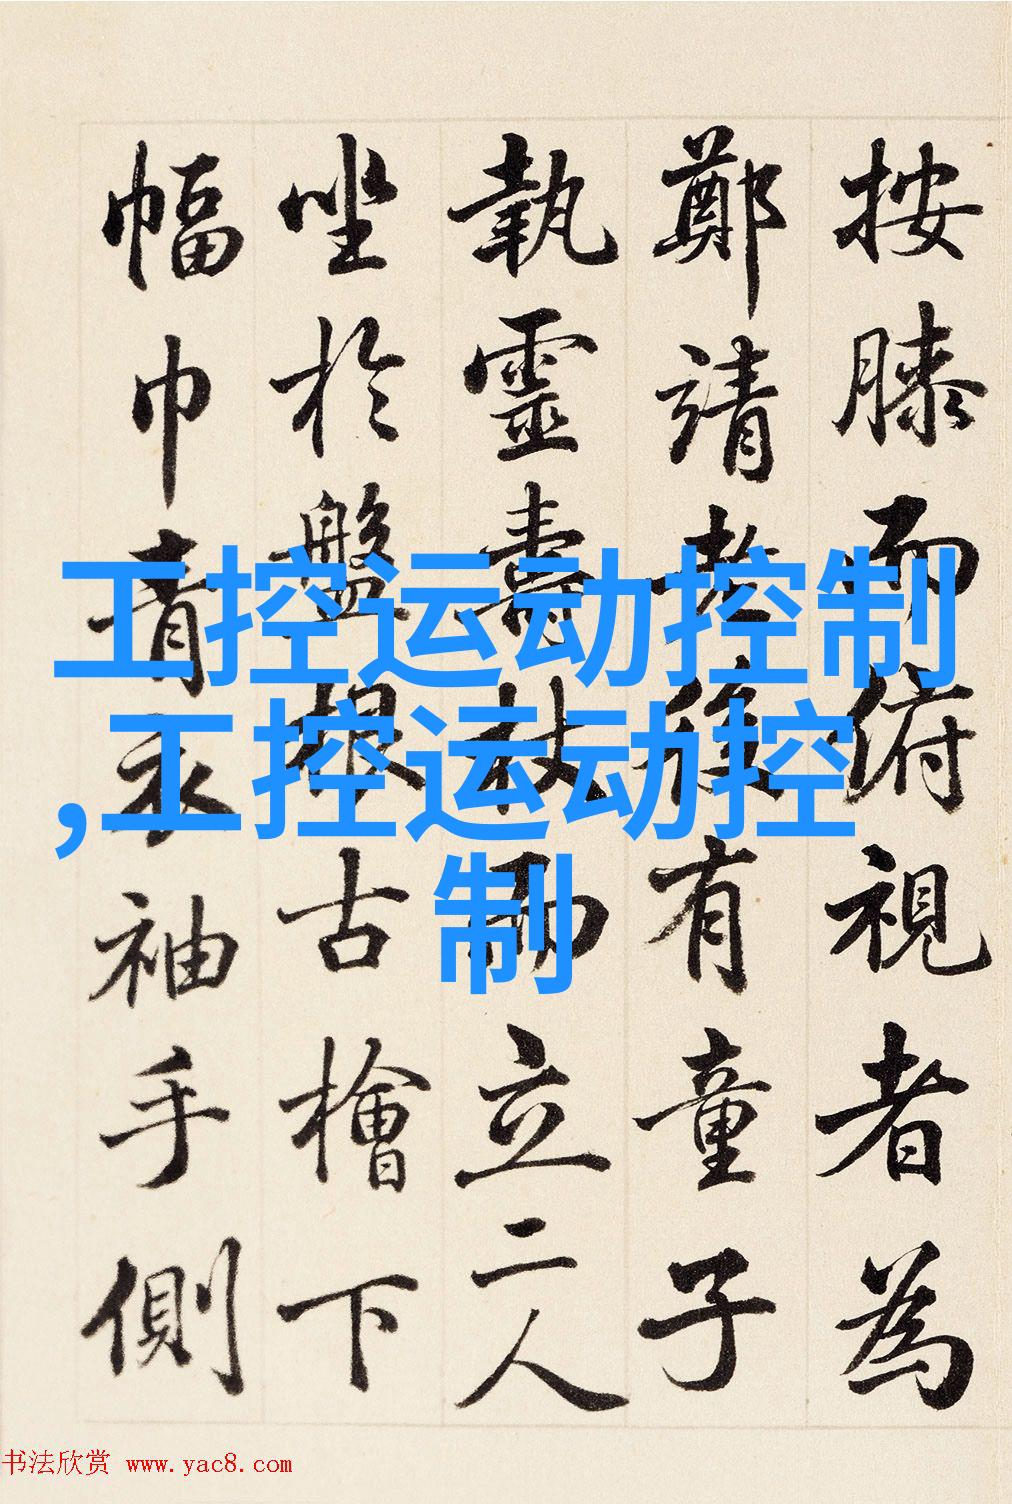 按膝而俯視者為
鄭靖老後有童子
執靈壽杖而立二人
坐於盤根古檜下
幅巾青衣袖手側
工控运动控制
,工控运动控
制
书法欣赏 www.yac8.com